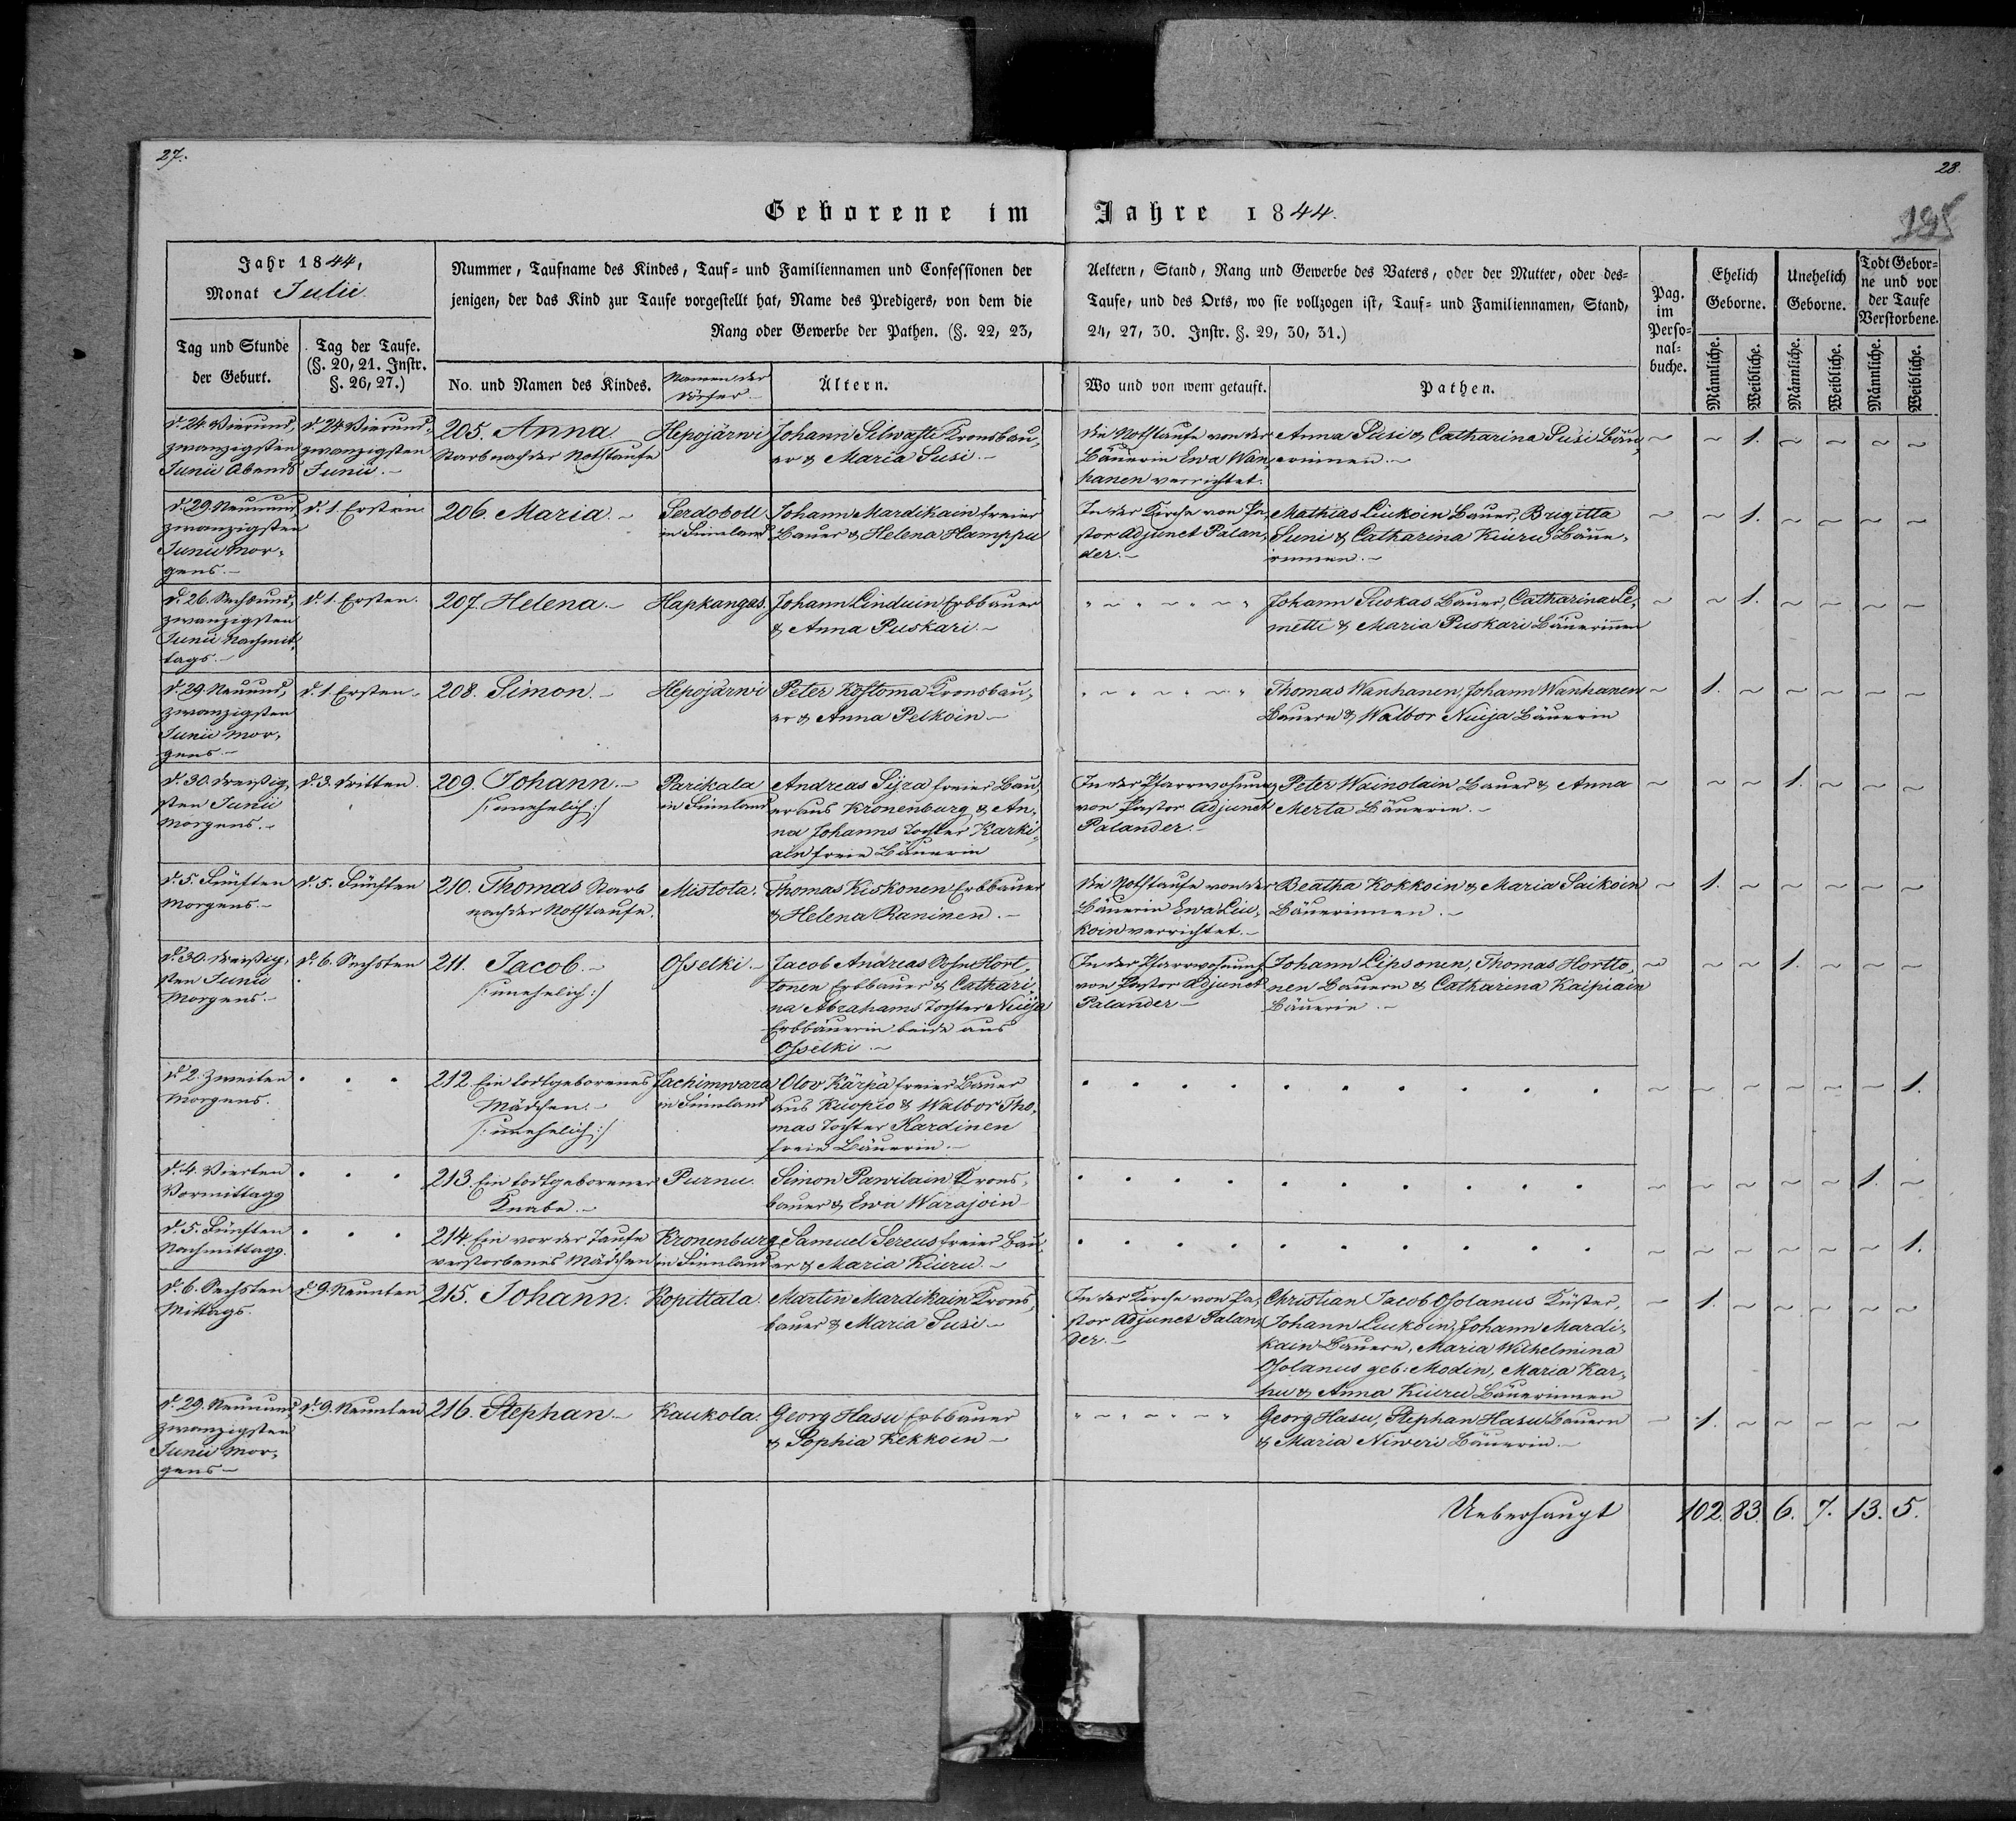 27.
28.
195
Geborene im Jahre 1844.
Jahr 1844,
Monat Julii.
Tag und Stunde
der Geburt.
Tag der Taufe.
(§. 20, 21. Instr.
§. 26, 27.)
Nummer, Taufname des Kindes, Tauf- und Familiennamen und Confessionen der
jenigen, der das Kind zur Taufe vorgestellt hat, Name des Predigers, von dem die
Rang oder Gewerbe der Pathen. (§. 22, 23,
No. und Namen des Kindes.
Namen der
Dörfer
Ältern.
Aeltern, Stand, Rang und Gewerbe des Vaters, oder der Mutter, oder des-
Taufe, und des Orts, wo sie vollzogen ist, Tauf- und Familiennamen, Stand,
24, 27, 30. Instr. §. 29, 30, 31.)
Wo und von wem getauft.
Pathen.
Pag.
im
Perso-
nal-
buche.
Ehelich
Geborne.
Unehelich
Geborne.
Todt Gebor-
ne und vor
der Taufe
Verstorbene.
Männliche.
Weibliche.
Männliche.
Weibliche.
Männliche.
Weibliche.
d. 24. Vierund,
zwanzigsten
Junii Abends
d. 24. Vierund,
zwanzigsten
Junii.
205. Anna.
Starb nach der Nothtaufe
Hepojärwi
Johann Silwasti Kronsbau,
er & Maria Susi.
Die Nothtaufe von der
Bäuerin Ewa Wan,
hanen verrichtet.
Anna Susi & Catharina Susi Bäu,
erinnen.
1.
d. 29. Neunund,
zwanzigsten
Junii Mor,
gens.
d. 1. Ersten
206. Maria.
Serdoboll
in Finnland
Johann Mardikain freier
Bauer & Helena Hamppu
In der Kirche von Pa,
stor Adjunct Palan,
der.
Mathias Liukoin Bauer, Brigitta
Suni & Catharina Kiuru Bäue,
rinnen.
1.
d. 26. Sechsund,
zwanzigsten
Junii Nachmit,
tags.
d. 1. Ersten.
207. Helena.
Hapkangas.
Johann Linduin Erbbauer
& Anna Puskari.
Johann Ruskas Bauer, Catharina Le,
metti & Maria Puskari Bäuerinnen
1.
d. 29. Neunund,
zwanzigsten
Junii Mor,
gens.
d. 1. Ersten.
208. Simon.
Hepojärwi
Peter Kostoma Kronsbau,
er & Anna Pelkoin
Thomas Wanhanen, Johann Wanhanen
Bauern & Walbor Nuija Bäuerin
1.
d. 30. dreißig,
sten Junii
Morgens.
d. 3. dritten.
209. Johann.
/: unehelich :/
Parikala
in Finnland
Andreas Sijra freier Bau,
er aus Kronenburg & An,
na Johanns Tochter Karki,
ain freie Bäuerin
In der Pfarrwohnung
von Pastor Adjunct
Palander.
Peter Wainolain Bauer & Anna
Merta Bäuerin.
1.
d. 5. Fünften
Morgens.
d. 5. Fünften
210. Thomas Starb
nach der Nothtaufe.
Mistola.
Thomas Kiskonen Erbbauer
& Helena Raninen.
Die Nothtaufe von der
Bäuerin Ewa Liu,
koin verrichtet.
Beatha Kokkoin & Maria Saikoin
Bäuerinnen.
1.
d. 30. dreißig,
sten Junii
Morgens.
d. 6. Sechsten
211. Jacob.
/: unehelich :/
Osselki.
Jacob Andreas Sohn Hort,
tonen Erbbauer & Cathari,
na Abrahams Tochter Nuija
Erbbäuerin beide aus
Osselki.
In der Pfarrwohnung
von Pastor Adjunct
Palander
Johann Lipsonen, Thomas Hortto,
nen Bauern & Catharina Kaipiain
Bäuerin.
1.
d. 2. Zweiten
Morgens.
212. Ein todtgeborenes
Mädchen.
/: unehelich :/
Jachimwara
in Finnland
Olov Kärpä freier Bauer
aus Kuopio & Walbor Tho,
mas Tochter Kardinen
freie Bäuerin.
1.
d. 4. Vierten
Vormittags
213. Ein todtgeborener
Knabe.
Purnu.
Simon Pawilain Krons,
bauer & Ewa Warajoin
1.
d. 5. Fünften
Nachmittags.
214. Ein vor der Taufe
verstorbenes Mädchen
Kronenburg
in Finnland
Samuel Sereus freier Bau,
er & Maria Kiuru.
1.
d. 6. Sechsten
Mittags.
d. 9. Neunten
215. Johann.
Kopittala.
Martin Mardikain Krons,
bauer & Maria Susi
In der Kirche von Pa,
stor Adjunct Palan,
der.
Christian Jacob Osolanus Küster,
Johann Liukoin, Johann Mardi,
kain Bauern, Maria Wilhelmina
Osolanus geb: Modin, Maria Kar,
hu & Anna Kiuru Bäuerinnen
1.
d. 29. Neunund,
zwanzigsten
Junii Mor,
gens
d. 9. Neunten
216. Stephan
Kaukola.
Georg Hasu Erbbauer
& Sophia Kekkoin
Georg Hasu, Stephan Hasu Bauern
& Maria Niweri Bäuerin.
1.
Ueberhaupt
102. 83. 6. 7. 13. 5.